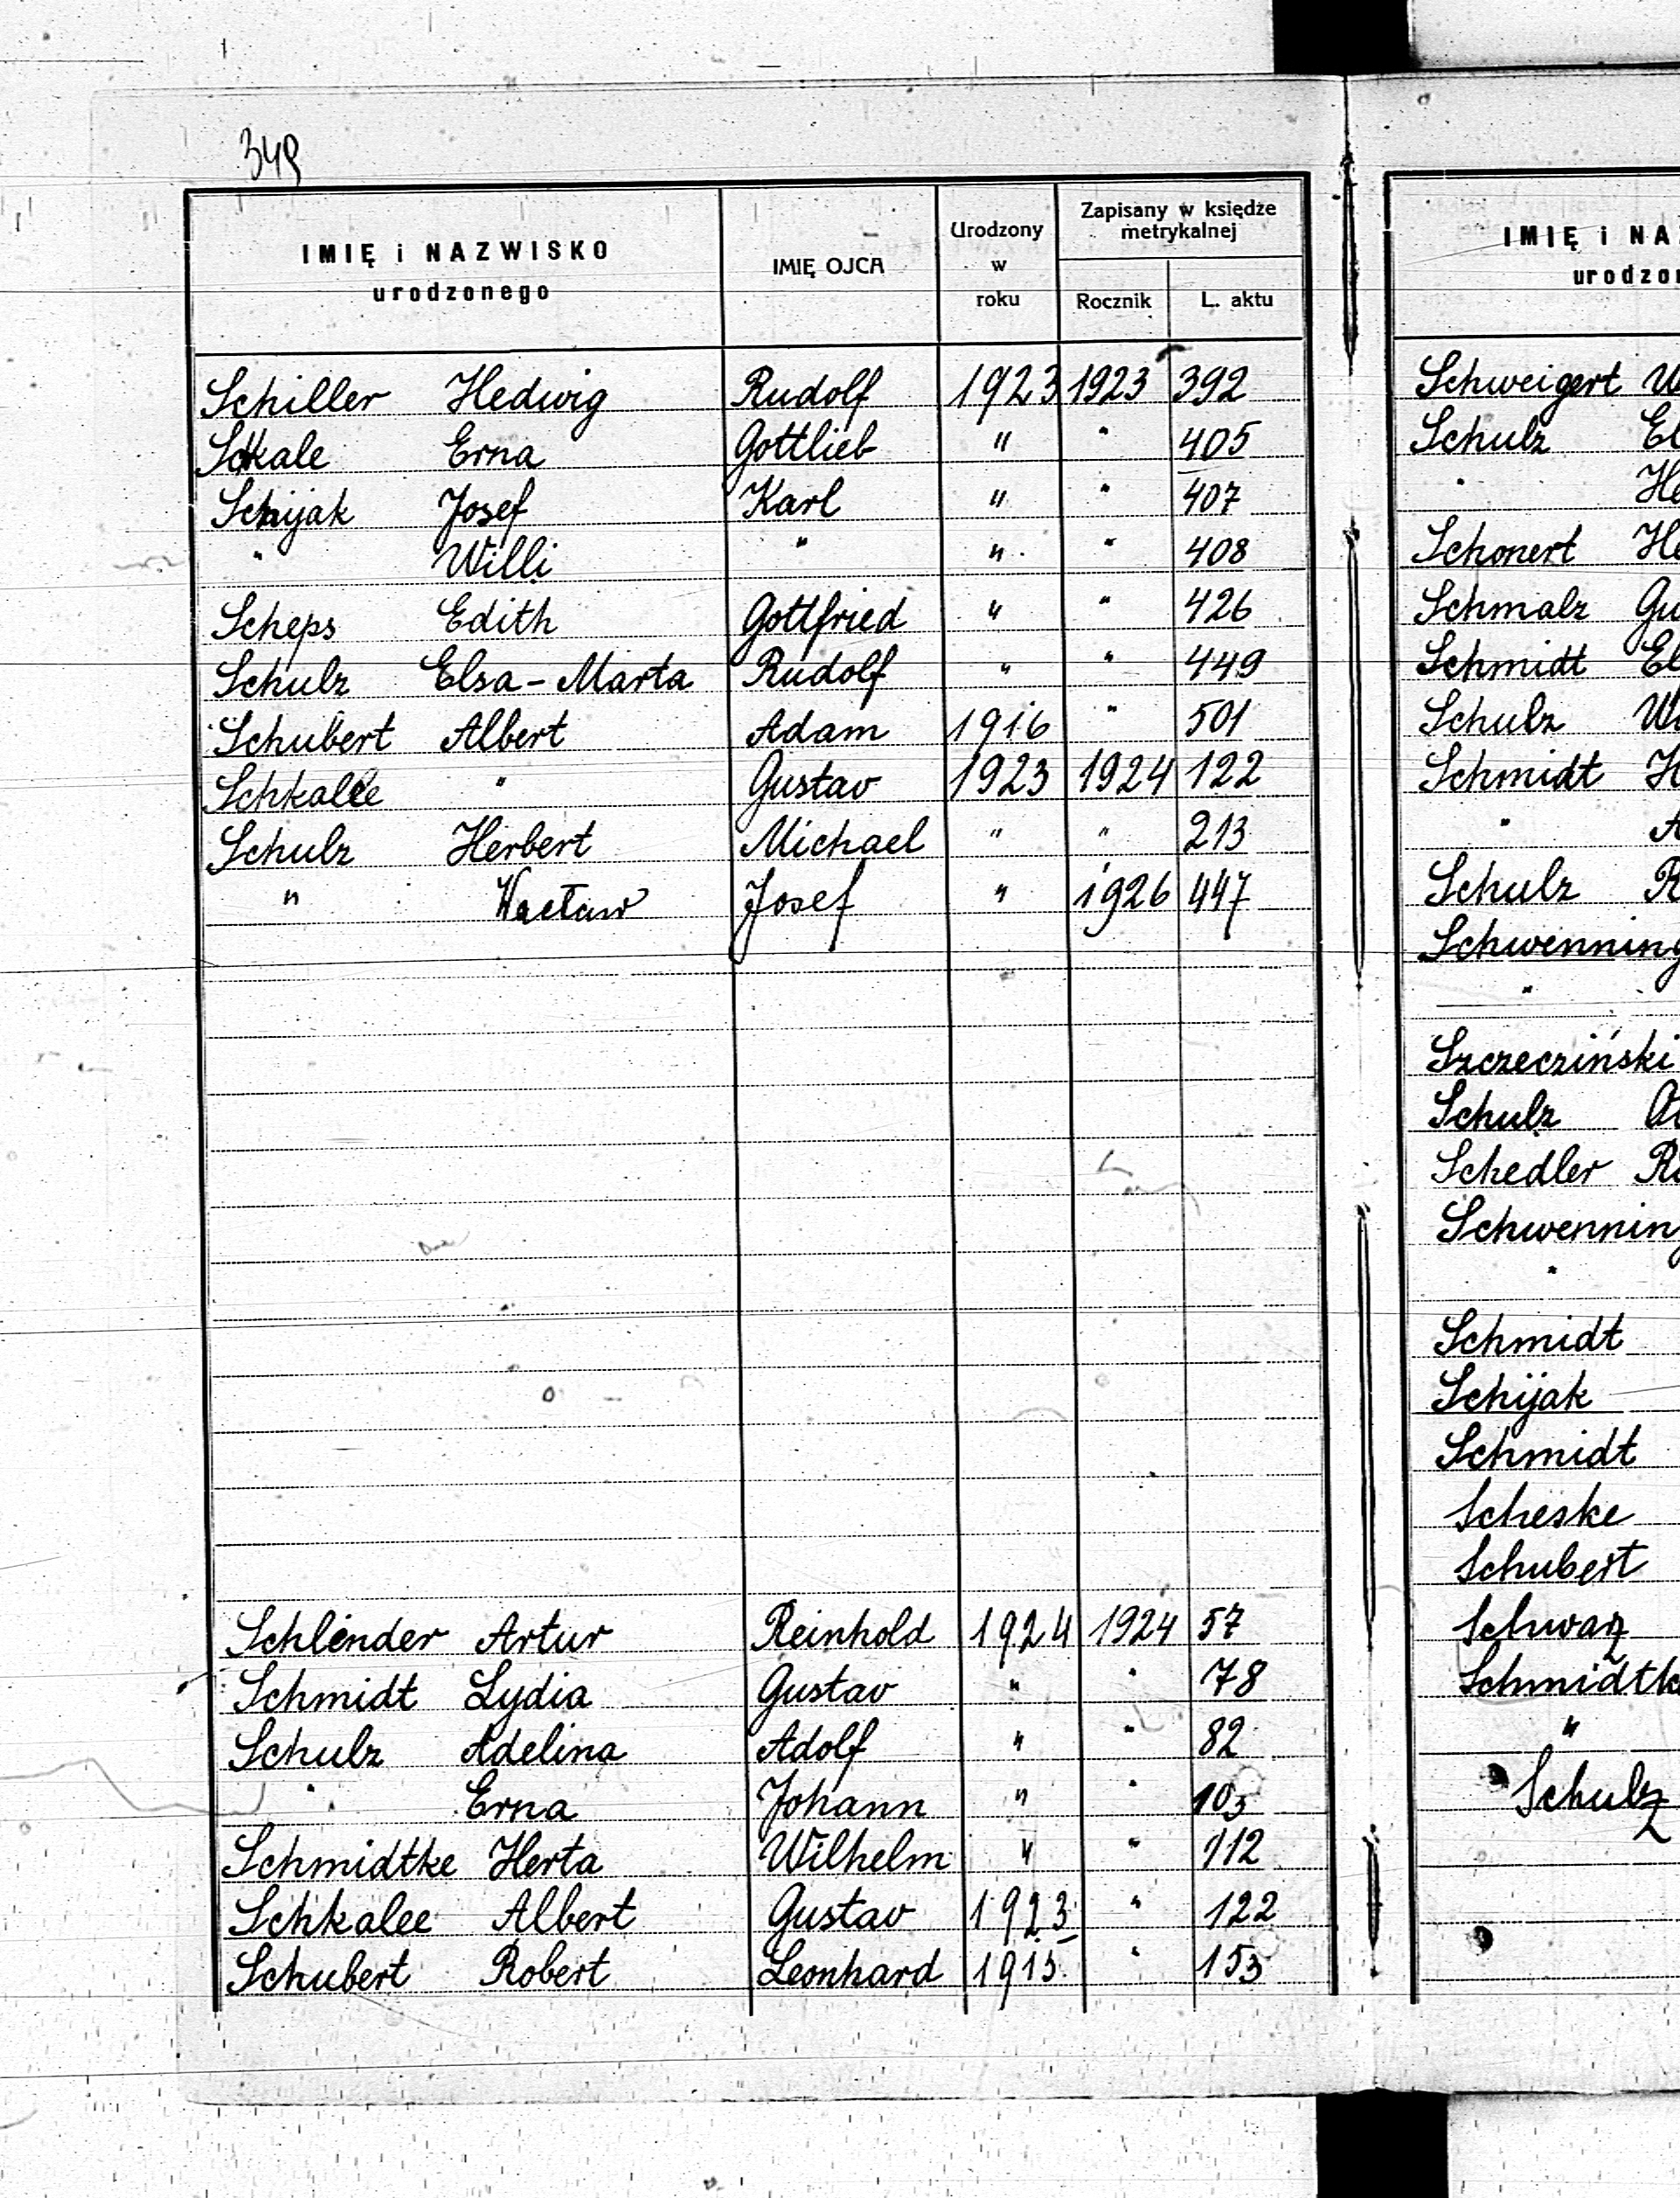 349
IMIĘ i NAZWISKO
urodzonego
IMIĘ OJCA
Urodzony
w
roku
Zapisany w księdze
metrykalnej
Rocznik L. aktu
Schiller Hedwig Rudolf 1923 1923 392
Schkale Erna Gottlieb " " 405
Schijak Josef Karl " " 407
" Willi " " " 408
Scheps Edith Gottfried " " 426
Schulz Elsa-Marta Rudolf " " 449
Schubert Albert Adam 1916 " 501
Schkalee " Gustav 1923 1924 122
Schulz Herbert Michael " " 213
" Wacław Josef " 1926 447
Schlender Artur Reinhold 1924 1924 57
Schmidt Lydia Gustav " " 78
Schulz Adelina Adolf " " 82
" Erna Johann " " 103
Schmidtke Herta Wilhelm " " 112
Schkalee Albert Gustav 1923 " 122
Schubert Robert Leonhard 1915 " 153
IMIĘ i NA
urodzo
Schweigert W
Schulz El
" He
Schonert He
Schmalz Gu
Schmidt El
Schulz W
Schmidt H
" A
Schulz R
Schwenning
"
Szczecziński
Schulz
Schedler R
Schwennin
"
Schmidt
Schijak
Schmidt
Scheske
Schubert
Schwarz
Schmidtk
"
Schulz